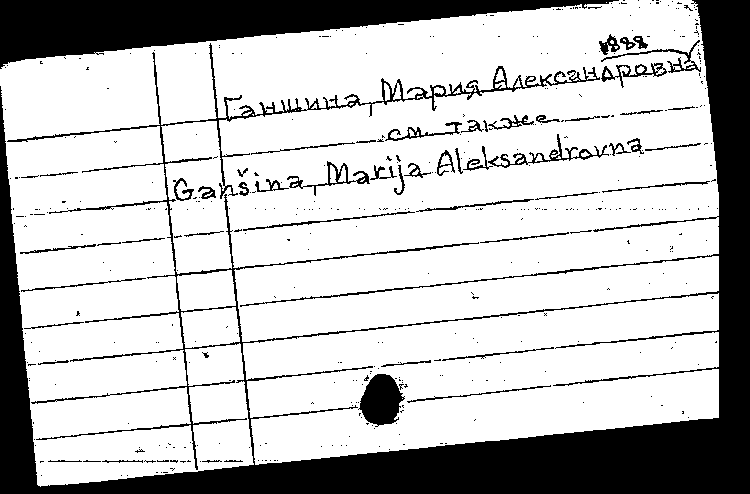 1888
Ганшина, Мария Александровна
см. также
Ganšina, Marija Aleksandrovna